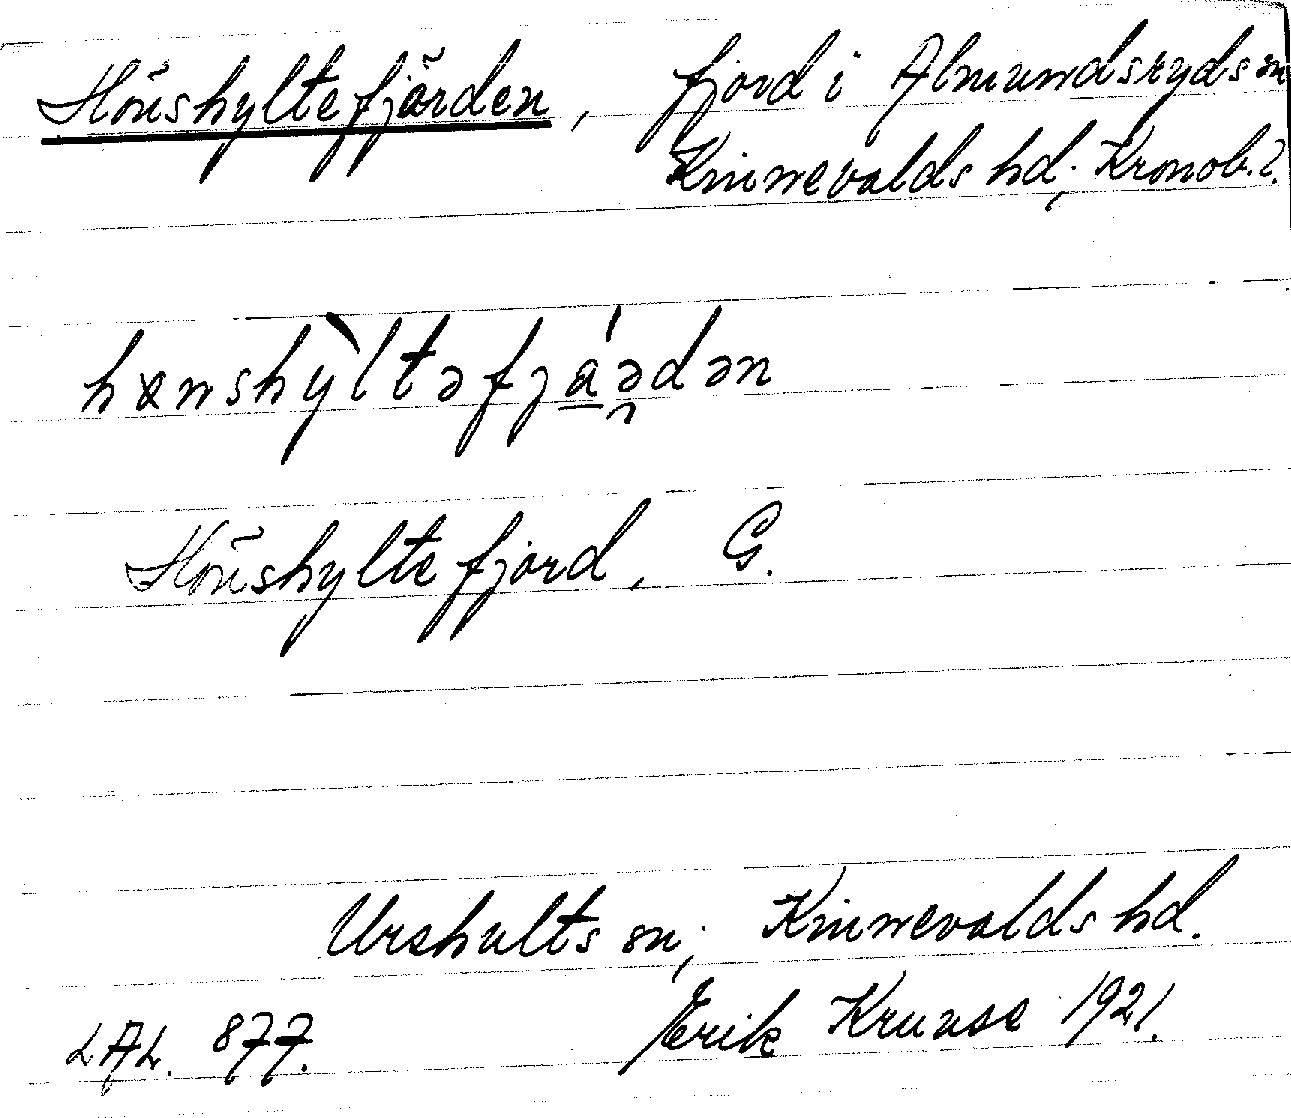 Hönshyltefjorden, fjord i Almundsryds sn
Kinnevalds hd; Kronob. l.
hɶnshỳltəfjáə̯dən
Hönshylte fjord, G.
Urshults sn; Kinnevalds hd.
LAL. 877. Erik Kruuse 1921.